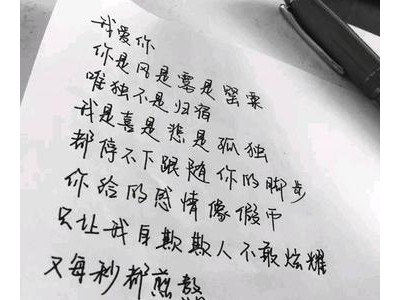 我爱你
你是风是雾是罂粟
唯独不是归宿
我是喜是悲是孤独
都停不下跟随你的脚步
你给的感情像假币
只让我自欺欺人不敢炫耀
又每秒都煎熬